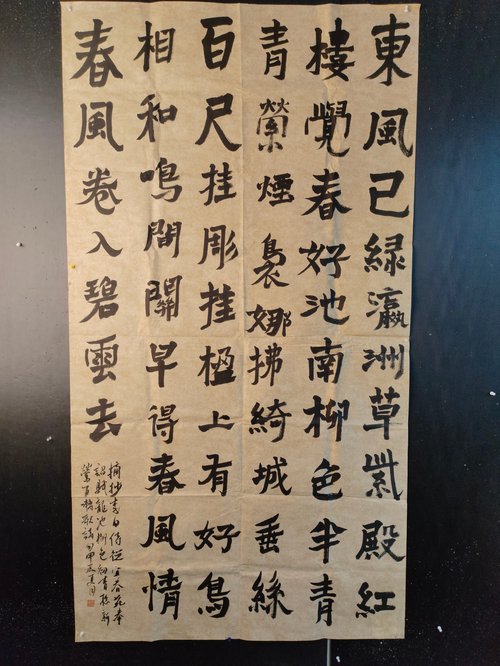 東風已緑瀛洲草紫殿紅
樓覺春好池南柳色半青
青縈煙裊娜拂綺城垂絲
百尺挂彫挂楹上有好鳥
相和鳴間關早得春風情
春風卷入碧雲去
摘抄李白侍從宜春苑奉
詔賦龍池柳色初青聽新
鶯百囀歌詩甲辰夏月